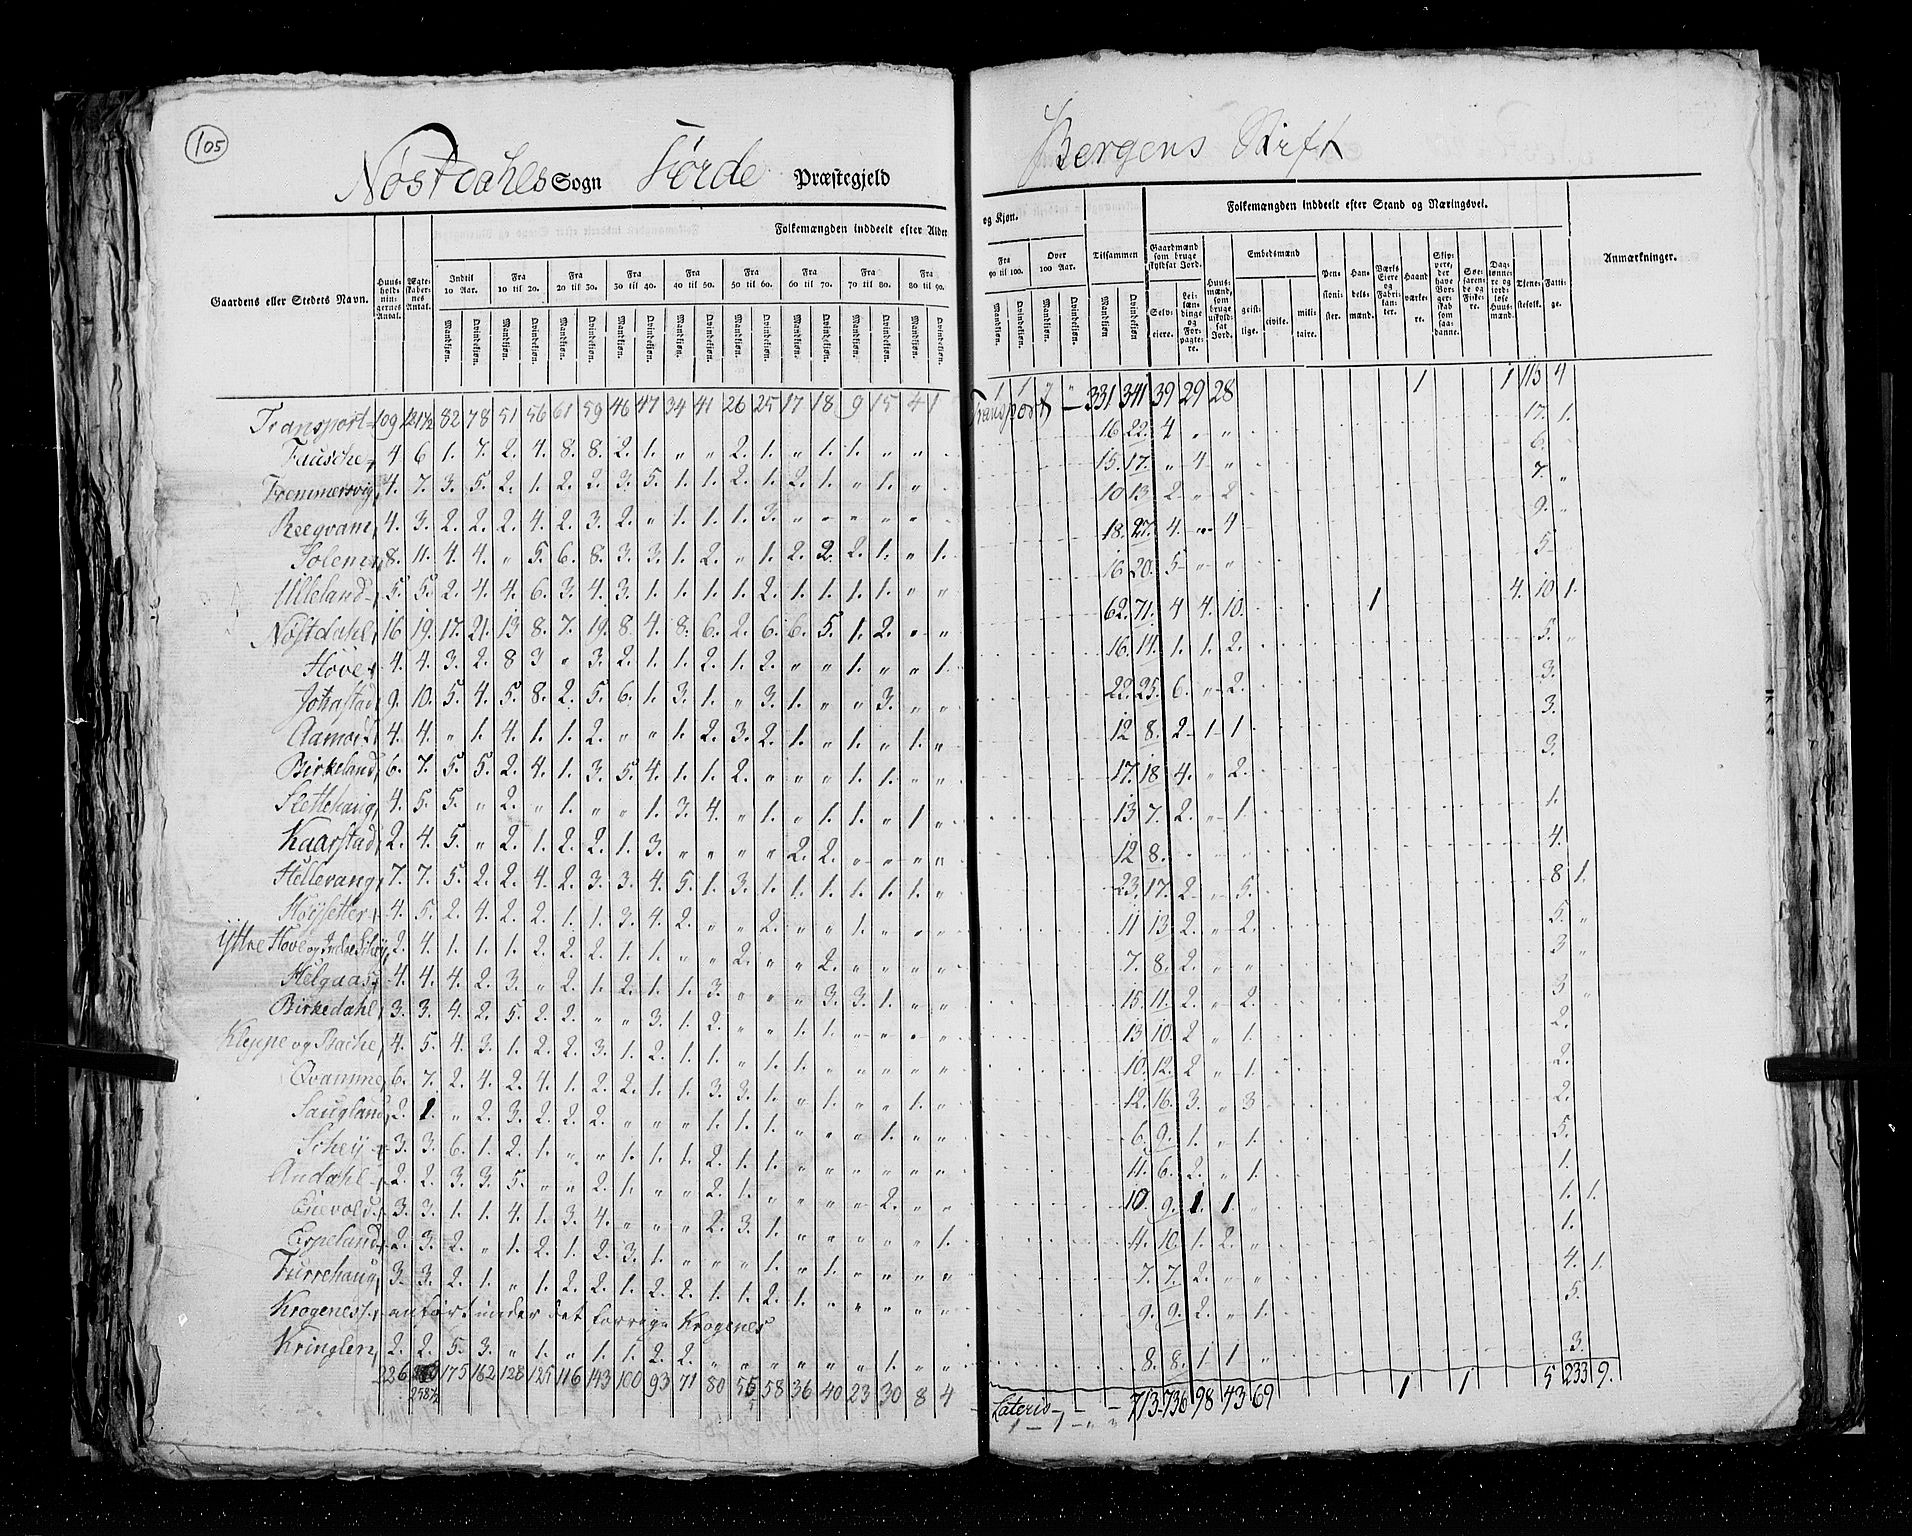 105
Nøstdahls Sogn Førde Præstegjeld
Bergens Stift
Gaardens eller Stedets Navn.
Huusholdningernes Antal.
Ægteskabernes Antal.
Folkemængden inddeelt efter Alder
og Kjøn.
Indtil 10 Aar.
Fra 10 til 20.
Fra 20 til 30.
Fra 30 til 40.
Fra 40 til 50.
Fra 50 til 60.
Fra 60 til 70.
Fra 70 til 80.
Fra 80 til 90.
Fra 90 til 100.
Over 100 Aar.
Tilsammen
Mandkjøn. Qvindekjøn.
Folkemængden inddeelt efter Stand og Næringsvei.
Gaardmænd som bruge skyldsat Jord.
Selveiere.
Leilændinge og Forpagtere.
Huusmænd, som bruge uskyldsat Jord.
Embedsmænd
geistlige.
civile.
militaire.
Pensionister.
Handelsmænd.
Værks Eiere og Fabrikanter.
Haandværkere.
Skippere, der have Borgerskab som saadanne.
Søefarende og Fiskere.
Daglønnere og jordløse Huusmænd.
Tjenestefolk.
Fattige.
Anmærkninger.
Transport 109 121½ 82 78 51 56 61 59 46 47 34 41 26 25 17 18 9 15 4 1 Transport 1 1 " " 331 341 39 29 28 1 1 113 4
4 6 1. 7. 2. 4. 8. 8. 2. 1. " " 2. 1. " 1. 1. " " 16 22. 4 " " 17. 1.
Tremmersvig 4. 7. 3. 5. 2. 1. 2. 2. 3. 5. 1. 1. 2. 1. 2. 1. " 1. " 15. 17. " 4 " 6.
4. 3. 2. 2. 2. 4. 2. 3. 2. " 1. 1. 1. 3. " " " " " 10 13. 2 " 2 7. "
8. 11. 4. 4. " 5. 6. 8. 3. 3. 1. 2. " 1. 2. 2. 2. 1. " 1. 18. 27. 4. " 4 9. "
Ulleland 5. 5. 2. 4. 4. 6. 3. 4. 3. 1. 1. 1. 1. 2. 1. 1. 1. 1. " " 16 20. 5 " " 5
Nøstdahl 16 19. 17. 21. 13 8. 7. 19. 8. 4. 8. 6. 2. 6. 6. 5. 1. 2. " " 62. 71. 4 4. 10. 1 4. 10 1.
Hove 4. 4. 3. 2. 8 3 " 3. 2. 1. 1. 2. 1. 2. " " 1. " " 1. 16. 14. 1. 1. 2. 5. "
9. 10. 5. 4. 5. 8. 2. 5. 6. 1. 3. 1. " 3. 1. " " 3. " " 22. 25. 6. " 2. 3.
Aamot 4. 4. " 1. 4. 1. 1. 2. " " 1. 2. 3. 2. 1. " 1. " 1. " 12 8. 2 1 1 3.
Birkeland 6. 7. 5. 5. 2. 4. 1. 3. 5. 4. 1. 1. 2. " " " 1. 1. " " 17. 18 4. " 2. 3.
Slettehaug 4. 5. 5. " 2. " 1. " " 1. 3. 4. " 1. " 1. 1. " 1 " 13 7. 2. " 1. 1.
Kaarstad 2. 4. 5. " 2. 1. 2. 2. 1. 3. " " " " 2. 2. " " " " 12 8. 4.
Hellevang 7. 7. 5. 2. 2. 4. 2. 3. 3. 4. 5. 1. 3. 1. 1. 1. 1. 1. 1. " 23. 17. 2 " 5. 8 1.
Høysetter 4. 5. 2. 4. 2. 2. 1. 1. 3. 4. 2. " " 2. " " 1. " " " 11 13 2. " 2. 5. "
Yttre Hove og Indre 2. 4. 1. 1. 1. 2. 2. 2. 1. 1. " " 2. " " 2. " " " " 7. 8. 2. " " 3 "
Helgaas 4. 4. 4. 2. 3. " 2. 1. 2. 1. 1. 3. " " " 3. 3. 1. " " 15. 11. 2. " 2. 3 "
Birkedahl 3. 3. 4. 2. 5. 2. 2. " " 3. 1. 2. " " 1. 1. " " " " 13 10. 2 " 1. 2.
Kleppe og Bache 4. 5. 4. 3. 1. 2. 2. 3. 1. 2. 1. 1. " 1. 1. " " " " " 10. 12. 2 " 1. 2.
Qvamme 6. 7. 2. 4. 2. 4. 1. 2. 2. 1. 1. 3. 3. 1. " 1. " " 1. " 12. 16. 3. " 3 2.
Saugland 2. 1. " 2. 3. 2. 2. 2. " " " 1. 1. 1. " " " 1. " " 6. 9. 1. " 1. 5.
3. 3. 6. 1. 2. 1. " " 1. 1. 1. 2. 1. 1. " " " " " " 11. 6. 2. " 1. 1.
Andahl 2. 2. 3. 3. 5. " " 2. 1. " " 2. 1. " " " " 2. " " 10 9. 1. 1. " 1. 1.
3. 3. 1. 1. 4. 1. 3. 4. " " " 2. 3. 1. " " " " " 1. 11. 10. 1. 2. " 1.
Espeland 2. 3. 2. " 1. 2. 1. 2. 3. 1. " " " 1. " 1. " " " " 7. 7. 2. " " 4. 1.
Furrehaug 3. 3. 2. 1. " 1. 2. 2. 1. 2. 2. 1. 1. 2. 1. " " " " " 9. 9. 2. " 1. 5.
Krogenes anført under det forrige Krogenes
Kringlen 2. 2. 5. 3. " 1. " 1. 1. 2. 2. " " " " " " 1. " " 8. 8. 1 1 " 3.
226 258½ 175 162 128 125 116 143 100 93 71 80 55 58 36 40 23 30 8 4 Lateris 1 1 " " 713 736 98 43 69 1 1 5 233 9.